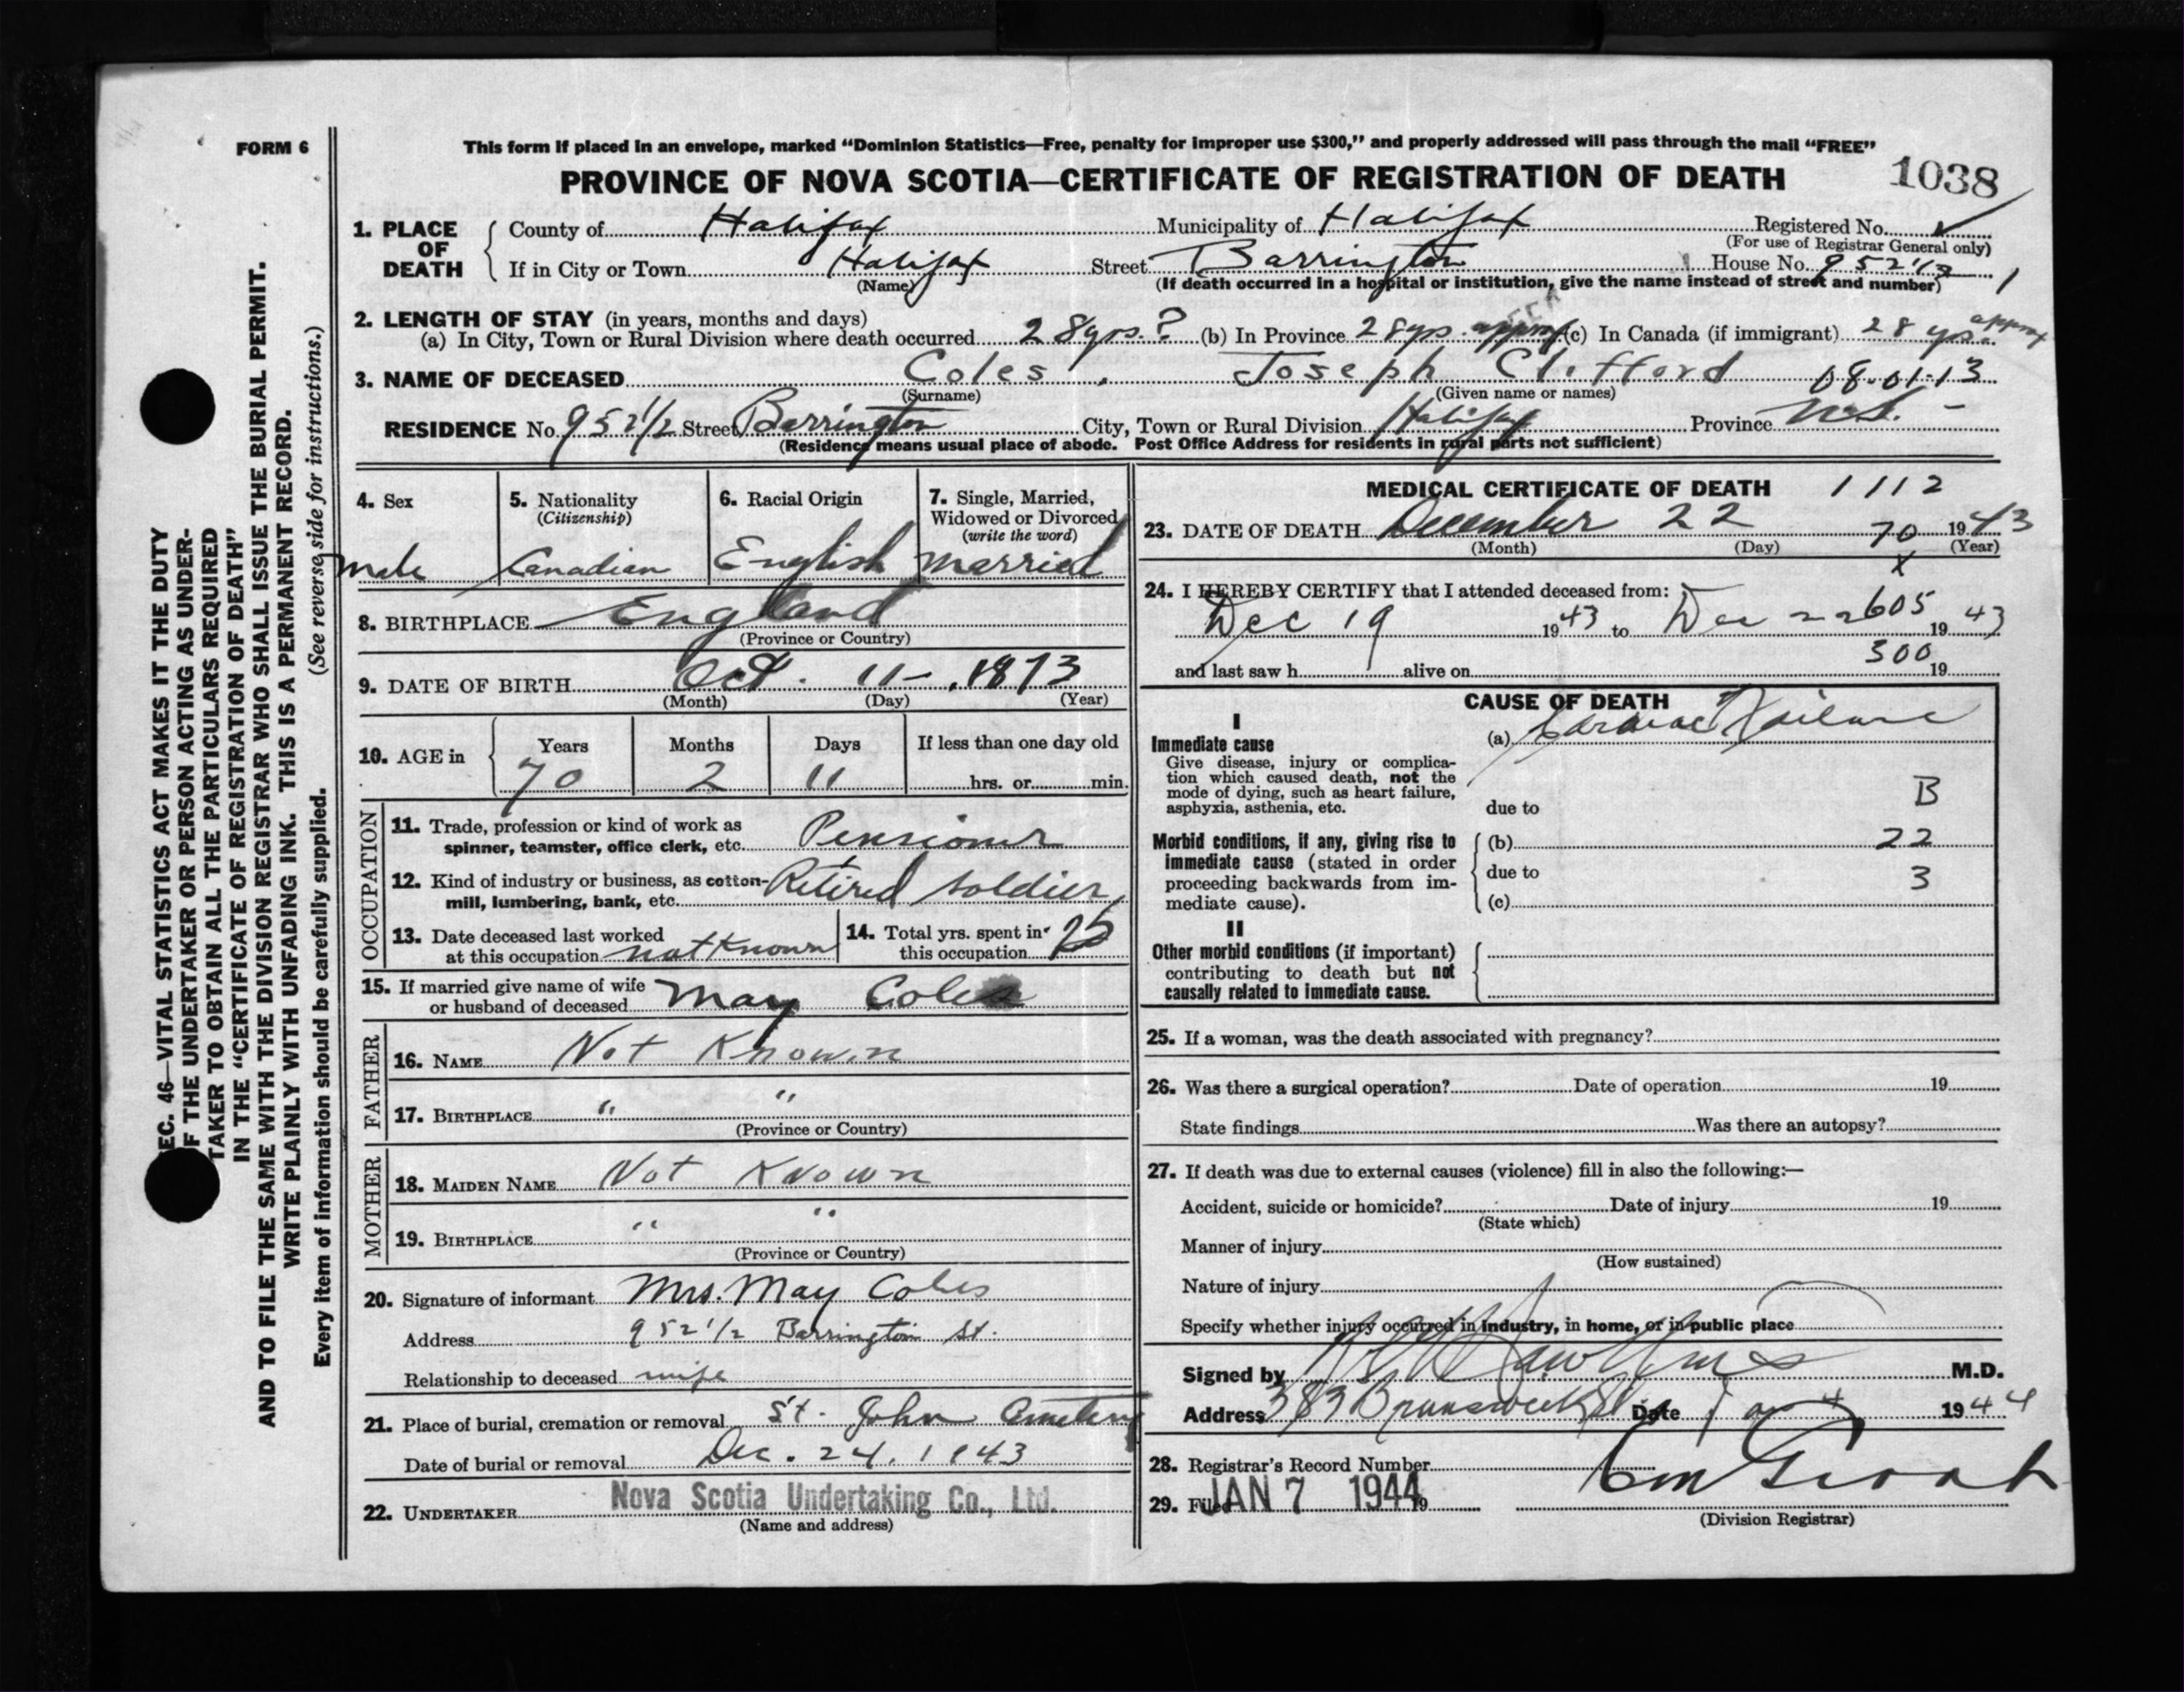 FORM 6
This form if placed in an envelope, marked “Dominion Statistics—Free, penalty for improper use $300,” and properly addressed will pass through the mail “FREE”
PROVINCE OF NOVA SCOTIA—CERTIFICATE OF REGISTRATION OF DEATH 1038
1. PLACE OF DEATH
County of Halifax Municipality of Halifax Registered No. ✓
(For use of Registrar General only)
If in City or Town Halifax Street Barrington House No. 952 1/2 1
(Name) (If death occurred in a hospital or institution, give the name instead of street and number)
2. LENGTH OF STAY (in years, months and days)
(a) In City, Town or Rural Division where death occurred 28 yrs. ? (b) In Province 28 yrs. approx (c) In Canada (if immigrant) 28 yrs. approx
3. NAME OF DECEASED Coles, Joseph Clifford 08-01-13
(Surname) (Given name or names)
RESIDENCE No. 952 1/2 Street Barrington City, Town or Rural Division Halifax Province N.S. –
(Residence means usual place of abode. Post Office Address for residents in rural parts not sufficient)
4. Sex
male
5. Nationality
(Citizenship)
Canadian
6. Racial Origin
English
7. Single, Married,
Widowed or Divorced
(write the word)
Married
8. BIRTHPLACE England
(Province or Country)
9. DATE OF BIRTH Oct. 11 – 1873
(Month) (Day) (Year)
10. AGE in
Years Months Days If less than one day old
70 2 11 hrs. or min.
OCCUPATION
11. Trade, profession or kind of work as
spinner, teamster, office clerk, etc. Pensioner
12. Kind of industry or business, as cotton-
mill, lumbering, bank, etc. Retired soldier
13. Date deceased last worked
at this occupation not Known
14. Total yrs. spent in
this occupation 25
15. If married give name of wife
or husband of deceased May Coles
FATHER
16. NAME Not Known
17. BIRTHPLACE " "
(Province or Country)
MOTHER
18. MAIDEN NAME Not Known
19. BIRTHPLACE " "
(Province or Country)
20. Signature of informant Mrs. May Coles
Address 952 1/2 Barrington St.
Relationship to deceased wife
21. Place of burial, cremation or removal St. John Cemetery
Date of burial or removal Dec. 24, 1943
22. UNDERTAKER Nova Scotia Undertaking Co., Ltd.
(Name and address)
MEDICAL CERTIFICATE OF DEATH 1112
23. DATE OF DEATH December 22 70 1943
(Month) (Day) (Year)
x
24. I HEREBY CERTIFY that I attended deceased from:
Dec 19 1943 to Dec 22 605 1943
and last saw h alive on 300 19
CAUSE OF DEATH
I
Immediate cause
Give disease, injury or complica-
tion which caused death, not the
mode of dying, such as heart failure,
asphyxia, asthenia, etc.
(a) Cardiac Failure
B
due to
Morbid conditions, if any, giving rise to
immediate cause (stated in order
proceeding backwards from im-
mediate cause).
(b) 22
due to 3
(c)
II
Other morbid conditions (if important)
contributing to death but not
causally related to immediate cause.
25. If a woman, was the death associated with pregnancy?
26. Was there a surgical operation? Date of operation 19
State findings Was there an autopsy?
27. If death was due to external causes (violence) fill in also the following:—
Accident, suicide or homicide? Date of injury 19
(State which)
Manner of injury
(How sustained)
Nature of injury
Specify whether injury occurred in industry, in home, or in public place
Signed by M.D.
Address 383 Brunswick St Date Jan 4 1944
28. Registrar's Record Number
29. Filed JAN 7 1944 19
(Division Registrar)
SEC. 46—VITAL STATISTICS ACT MAKES IT THE DUTY
OF THE UNDERTAKER OR PERSON ACTING AS UNDER-
TAKER TO OBTAIN ALL THE PARTICULARS REQUIRED
IN THE “CERTIFICATE OF REGISTRATION OF DEATH”
AND TO FILE THE SAME WITH THE DIVISION REGISTRAR WHO SHALL ISSUE THE BURIAL PERMIT.
WRITE PLAINLY WITH UNFADING INK. THIS IS A PERMANENT RECORD.
Every item of information should be carefully supplied. (See reverse side for instructions.)